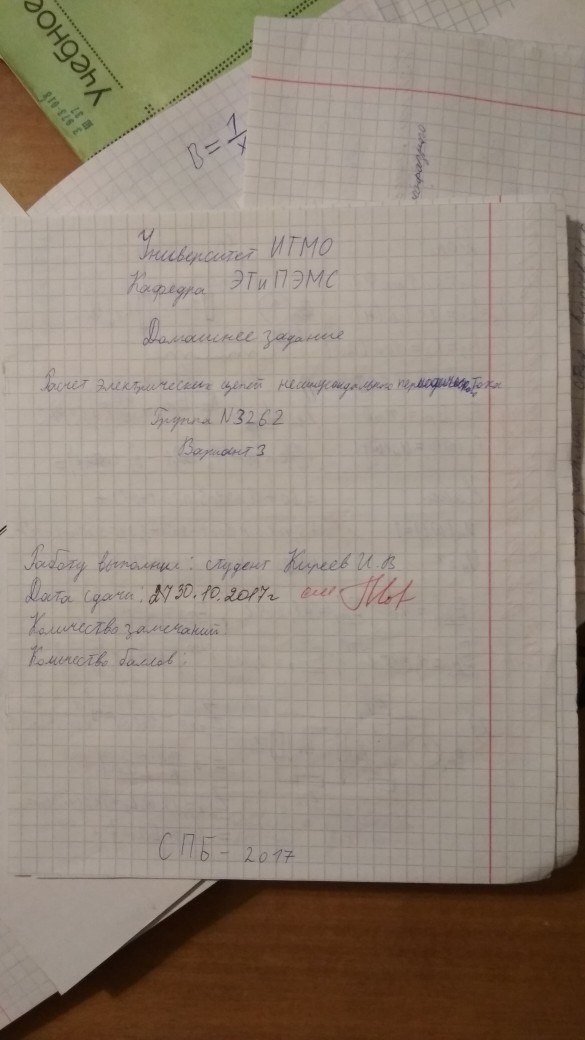 Учебное
З 973-018
Ш 37
B = 1/x
Университет ИТМО
Кафедра ЭТиПЭМС
Домашнее задание
Расчет электрических цепей несинусоидального периодического тока
Группа N3262
Вариант 3
Работу выполнил: студент Киреев И. В
Дата сдачи: 30.10.2017г
Количество замечаний:
Количество баллов:
СПБ - 2017